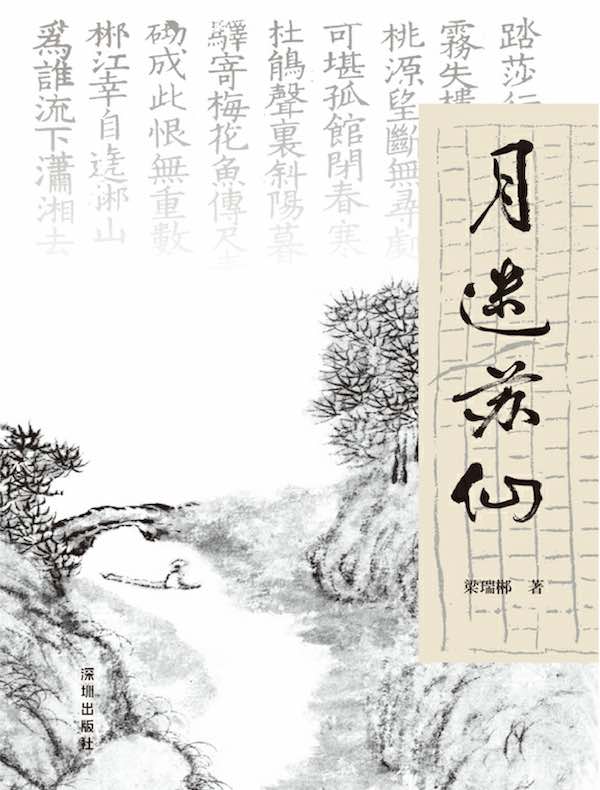 踏莎行
霧失樓
桃源望斷無尋處
可堪孤館閉春寒
杜鵑聲裏斜陽暮
驛寄梅花魚傳尺
砌成此恨無重數
郴江幸自遶郴山
爲誰流下瀟湘去
月迷苏仙
梁瑞郴 著
深圳出版社